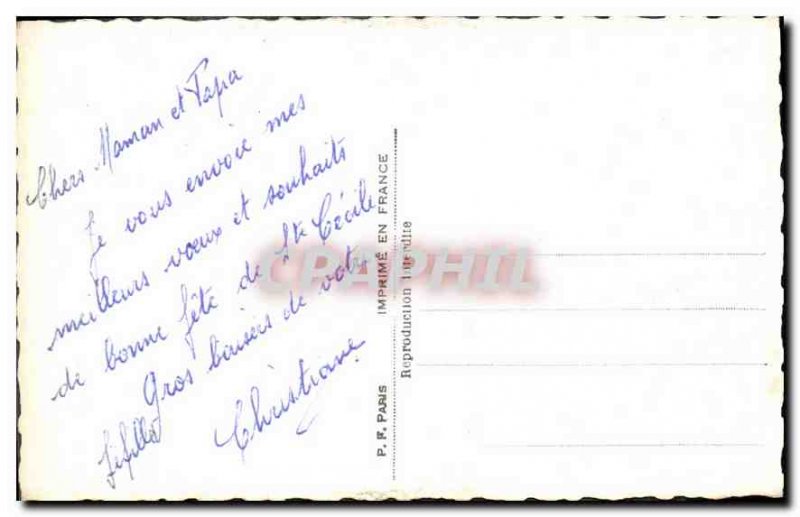 Chers Maman et Papa
Je vous envoie mes
meilleurs vœux et souhaits
de bonne fête de Ste Cécile
Gros baisers de votre
fifille
Christiane
P. F. PARIS IMPRIMÉ EN FRANCE
Reproduction interdite
CPAPHIL